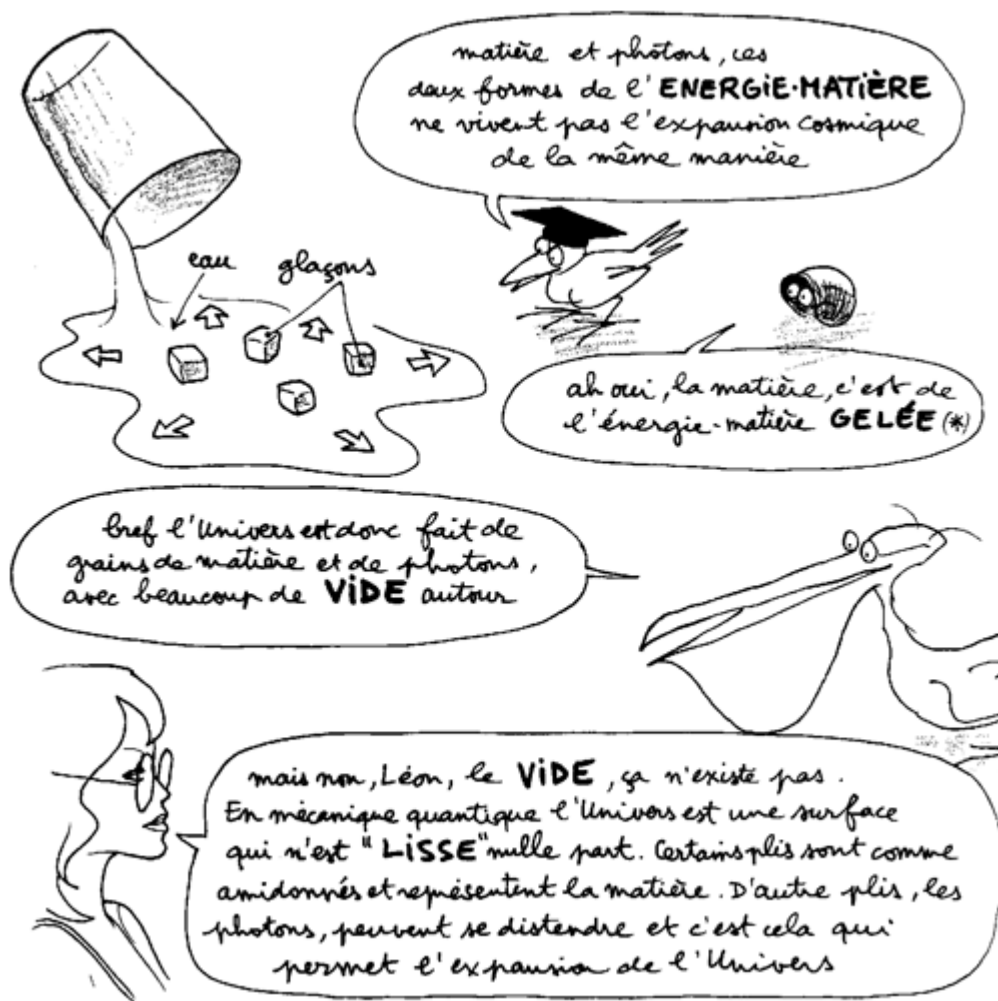 matière et photons, ces
deux formes de l'ENERGIE-MATIÈRE
ne vivent pas l'expansion cosmique
de la même manière
eau
glaçons
ah oui, la matière, c'est de
l'énergie-matière GELÉE (*)
bref l'Univers est donc fait de
grains de matière et de photons,
avec beaucoup de VIDE autour
mais non, Léon, le VIDE, ça n'existe pas.
En mécanique quantique l'Univers est une surface
qui n'est "LISSE" nulle part. Certains plis sont comme
amidonnés et représentent la matière. D'autre plis, les
photons, peuvent se distendre et c'est cela qui
permet l'expansion de l'Univers